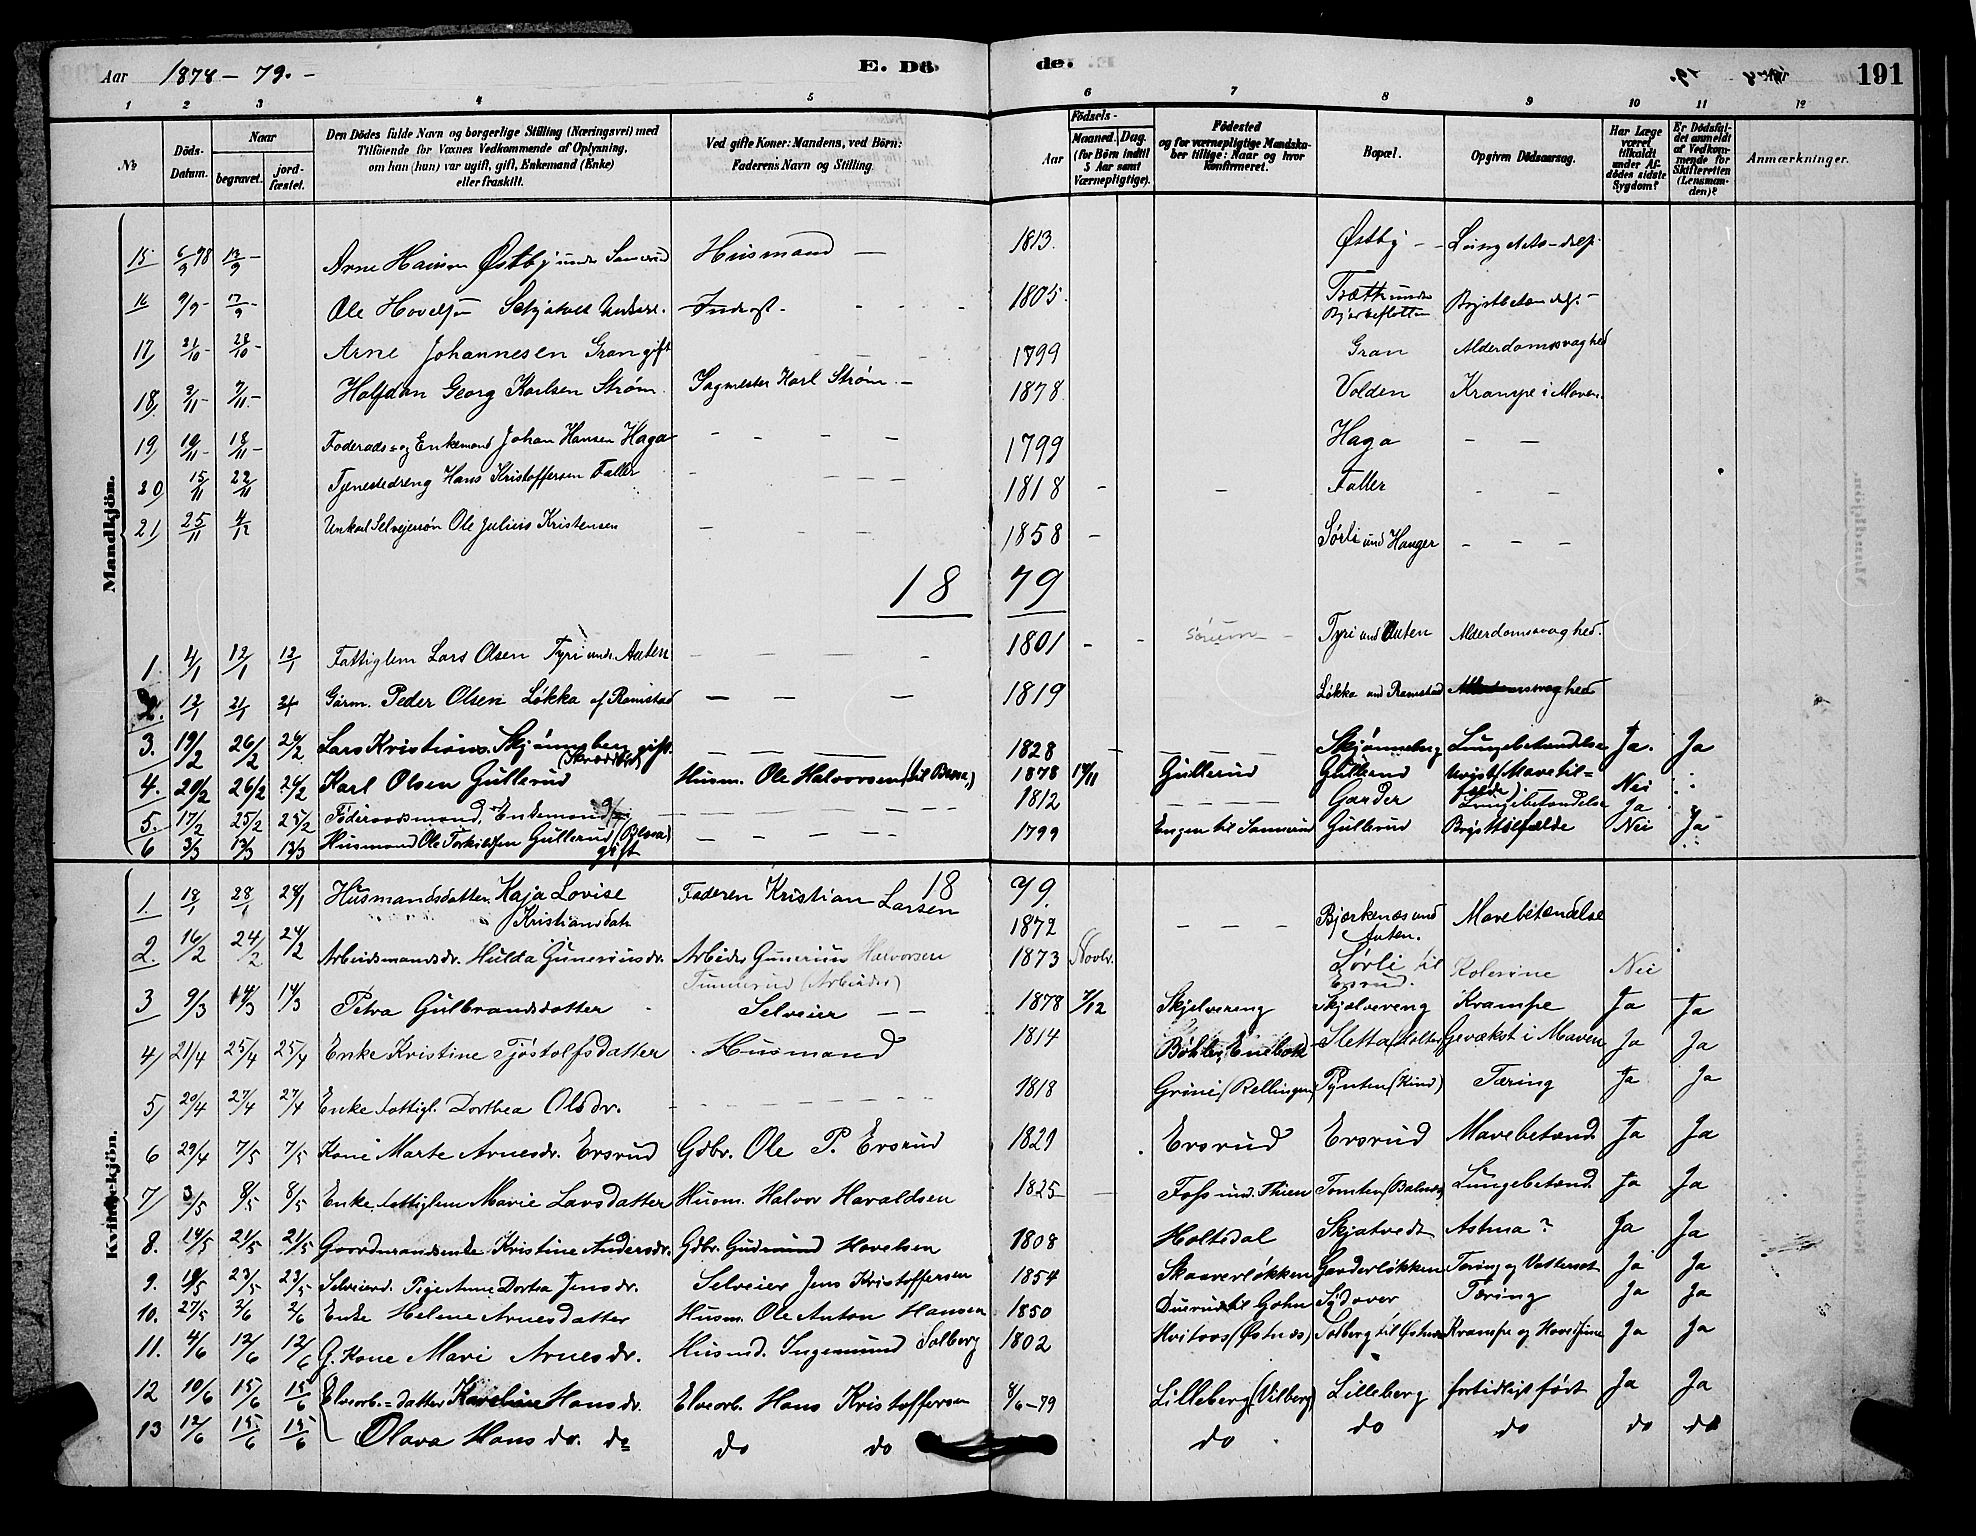 Aar 1878 - 79. -
E. Döde.
191
1 2 3 4 5 6 7 8 9 10 11 12
No
Döds-Datum.
Naar
begravet.
jordfæstet.
Den Dödes fulde Navn og borgerlige Stilling (Næringsvei) med
Tilföiende for Voxnes Vedkommende af Oplysning,
om han (hun) var ugift, gift, Enkemand (Enke)
eller fraskilt.
Ved gifte Koner: Mandens, ved Börn:
Faderens Navn og Stilling.
Födsels-
Aar
Maaned. Dag.
(for Börn indtil
5 Aar samt
Værnepligtige).
Födested
og for værnepligtige Mandskaber tillige: Naar og hvor
Konfirmeret.
Bopæl.
Opgiven Dödsaarsag.
Har Læge
været
tilkaldt
under Afdödes sidste
Sygdom?
Er Dödsfaldet anmeldt
af Vedkommende for
Skifteretten
(Lensmanden)?
Anmærkninger.
Mandkjön.
15 6/9 78 13/9 - Arne Hansen Østby under Husmand - 1813. Østby -
16 9/9 - 17/9 - Ole 1805. Brystbetændelse -
17 21/10 - 28/10 - Arne Johannesen Gran gift 1799 Gran Alderdomssvaghed
18, 2/11 - 9/11 - Halfdan Georg Karlsen Strøm. Sagmester Karl Strøm. - 1878. Volden Krampe i Maven.
19, 10/11 - 18/11 - Foderaads- og Enkemand Johan Hansen Haga - - - - 1799 Haga - -
20, 15/11 22/11 Tjenestedreng Hans Kristoffersen Faller - - - - 1818 - - Faller - -
21, 25/11 4/12 Ungkarl Selvejersøn Ole Julius Kristensen - - - 1858 - Sørli und Hanger - - -
1879
1. 4/1 12/1 12/1 Fattiglem Lars Olsen Tyri under Aaten - - - - 1801 - - Sørum - Tyri und Aaten Alderdomssvaghed.
2. 12/1 21/1 Gaarm. Peder Olsen Løkka af Ramstad - - - 1819 Løkka und Ramstad Alderdomssvaghed
3. 19/2 26/2 26/2 Lars Kristians. Skjønneberg gift. - - - 1828 - - - - Skjønneberg Lungebetændelse Ja. Ja
4. 20/2 26/2 26/2 Karl Olsen Gullerud Husm. Ole Halvorsen 1878 Gullerud Gullerud Mavetilfælde Nei
5. 17/2 25/2 25/2 Föderaadsmand, Enkemand 1812 - - - - Garder Lungebetændelse Ja Ja
6 3/3 13/3 13/3 Husmand Ole Torkildsen Gullerud gift - - - - 1799 Engen til Gullerud Brysttilfælde Nei
Kvindekjön.
1879.
1. 18/1 28/1 28/1 Husmandsdatter Kaja Lovise
Kristiansdatr Faderen Kristian Larsen 1872 - - - Bjerkenæs und
Aaten. Mavebetændelse
2. 16/2 24/2 24/2 Arbeidsmandsdr. Hulda Guneriusdr. Arbeider Gunerius Halvorsen
(Arbeider) 1873 Novbr. Sørli til
Kolerine Nei
3 9/3 14/3 14/3 Petra Gulbrandsdatter - Selveier - - 1878 7/12 Skjelvereng Skjelvereng Krampe Ja Ja
4, 21/4 25/4 25/4 Enke Kristine Tjöstolfsdatter - Husmand 1814 Sletta Gevækst i Maven Ja Ja
5, 20/4 27/4 27/4 Enke Fattigl. Dorthea Olsdr. - - - - 1818 Grini Pynten (Kind) Tæring Ja Ja
6 29/4 7/5 7/5 Kone Marte Arnesdr. Ersrud Gdbr. Ole P. Ersrud 1829 . Ersrud Ersrud Mavebetænd. Ja Ja
7, 3/5 8/5 8/5 Enke Fattiglem Marie Larsdatter Husm. Halvor Haraldsen 1825 - Foss und. Tomten Lungebetænd. Ja Ja
8. 14/5 21/5 21/5 Gaardmandsenke Kristine Andersdr. Gdbr. Gudmund Hovelsen 1808 Holtsdal Skjatvedt Astma? Ja Ja
9. 23/5 23/5 Selveierd. Pige Anne Dortea Jensdr. Selveier Jens Kristoffersen 1854 Skaaverløkken Garderløkken Tæring og Vattersot Ja Ja
10. 27/5 2/6 2/6 Enke Helene Arnesdatter Husm. Ole Anton Hansen 1850 Tæring Ja Ja
11. 4/6 12/6 12/6 G. Kone Mari Arnesdr. Husmd. Ingemund Solberg 1802 Solberg til Krampe og Ja Ja
12 10/6 15/6 15/6 Elvearb.=datter Karoline Hansdr. Elvearb. Hans Kristoffersen 8/6-79 Lilleberg (Vilberg) Lilleberg fortidligt født Ja Ja
13 12/6 15/6 15/6 Olava Hansdr. do do do do do do do do